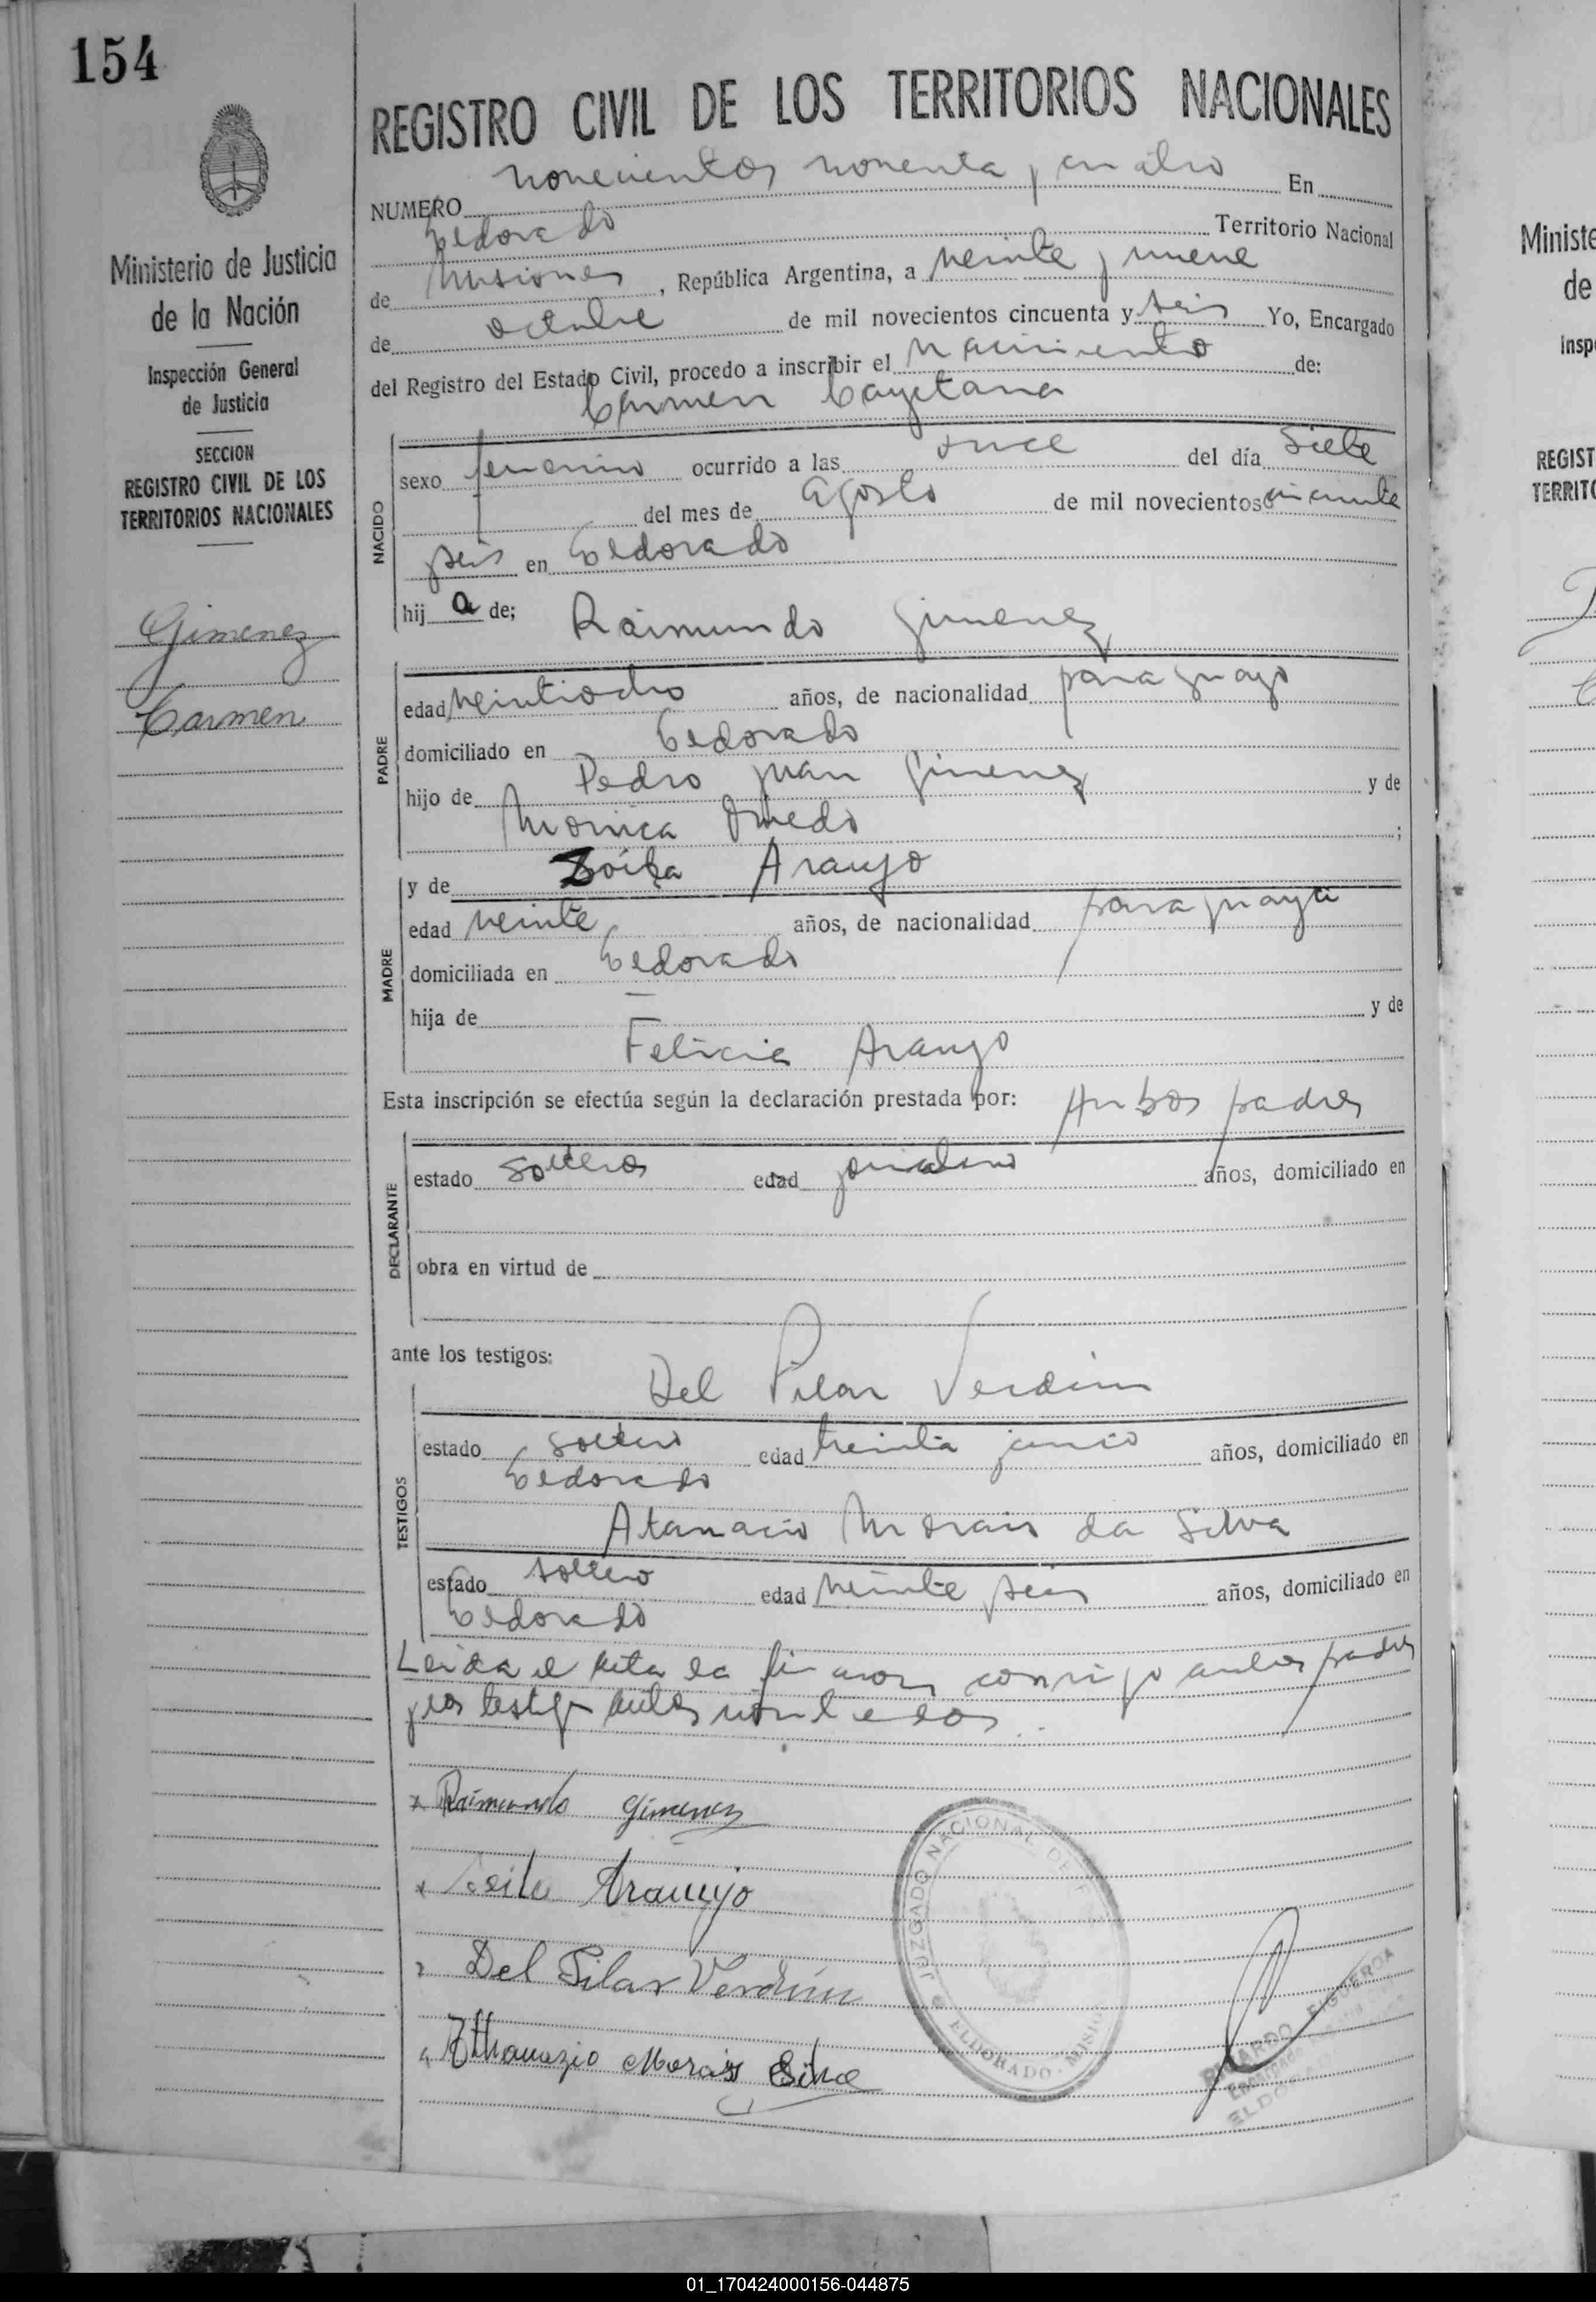 154
REGISTRO CIVIL DE LOS TERRITORIOS NACIONALES
NUMERO novecientos noventa y cuatro En
Eldorado Territorio Nacional
de Misiones, República Argentina, a veinte y nueve
de octubre de mil novecientos cincuenta y seis Yo, Encargado
del Registro del Estado Civil, procedo a inscribir el nacimiento de:
Carmen Cayetana
Ministerio de Justicia
de la Nación
Inspección General
de Justicia
SECCION
REGISTRO CIVIL DE LOS
TERRITORIOS NACIONALES
Gimenez
Carmen
NACIDO
sexo femenino ocurrido a las once del día siete
del mes de agosto de mil novecientos cincuenta
y seis en Eldorado
hij a de; Raimundo Gimenez
PADRE
edad veintiocho años, de nacionalidad paraguayo
domiciliado en Eldorado
hijo de Pedro Juan Gimenez y de
Monica ;
y de Zoila Araujo
MADRE
edad veinte años, de nacionalidad paraguaya
domiciliada en Eldorado
hija de — y de
Felicia Araujo
Esta inscripción se efectúa según la declaración prestada por: Ambos padres
DECLARANTE
estado solteros edad años, domiciliado en
obra en virtud de
ante los testigos:
Del Pilar Verdún
TESTIGOS
estado soltero edad treinta cinco años, domiciliado en
Eldorado
Atanacio Morais da Silva
estado soltero edad veinte seis años, domiciliado en
Eldorado
Leida el acta la firmaron conmigo ambos padres
y los testigos
x Raimundo Gimenez
x Araujo
x Del Pilar Verdún
x Athanazio Morais Silva
JUZGADO NACIONAL DE
ELDORADO - MISIO
RICARDO FIGUEROA
Encargado
ELDO
Ministe
de
Insp
REGIST
TERRITO
01_170424000156-044875